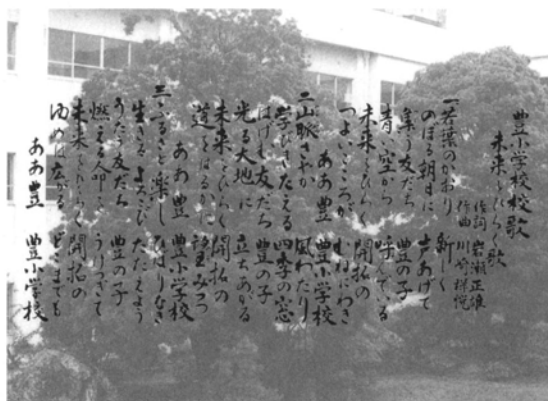 豊小学校校歌
未来をひらく歌
作詞 岩瀬正雄
作曲 川崎祥悦
一若葉のかおり 新しく
のぼる朝日に 声あげて
集う友だち 豊の子
青い空から 呼んでいる
未来をひらく 開拓の
つよいこころが むねにわき
ああ豊 豊小学校
二山脈さやか 風わたり
学びにたえる 四季の窓
はげむ友だち 豊の子
光る大地に 立ちあがる
未来をひらく 開拓の
道をはるかに 望みつつ
ああ豊 豊小学校
三ふるさと楽し ひばりなき
生きるよろこび たたえよう
うたう友だち 豊の子
燃える命に うけつぎて
未来をひらく 開拓の
ゆめは広がる どこまでも
ああ豊 豊小学校